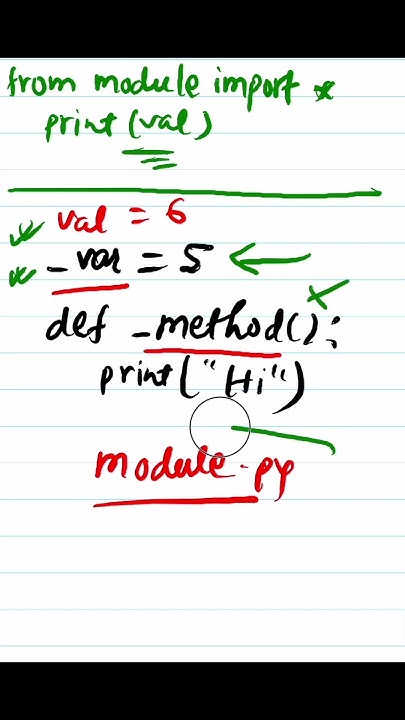 from module import *
print(val)
val = 6
_var = 5
def _method():
print("Hi")
module.py